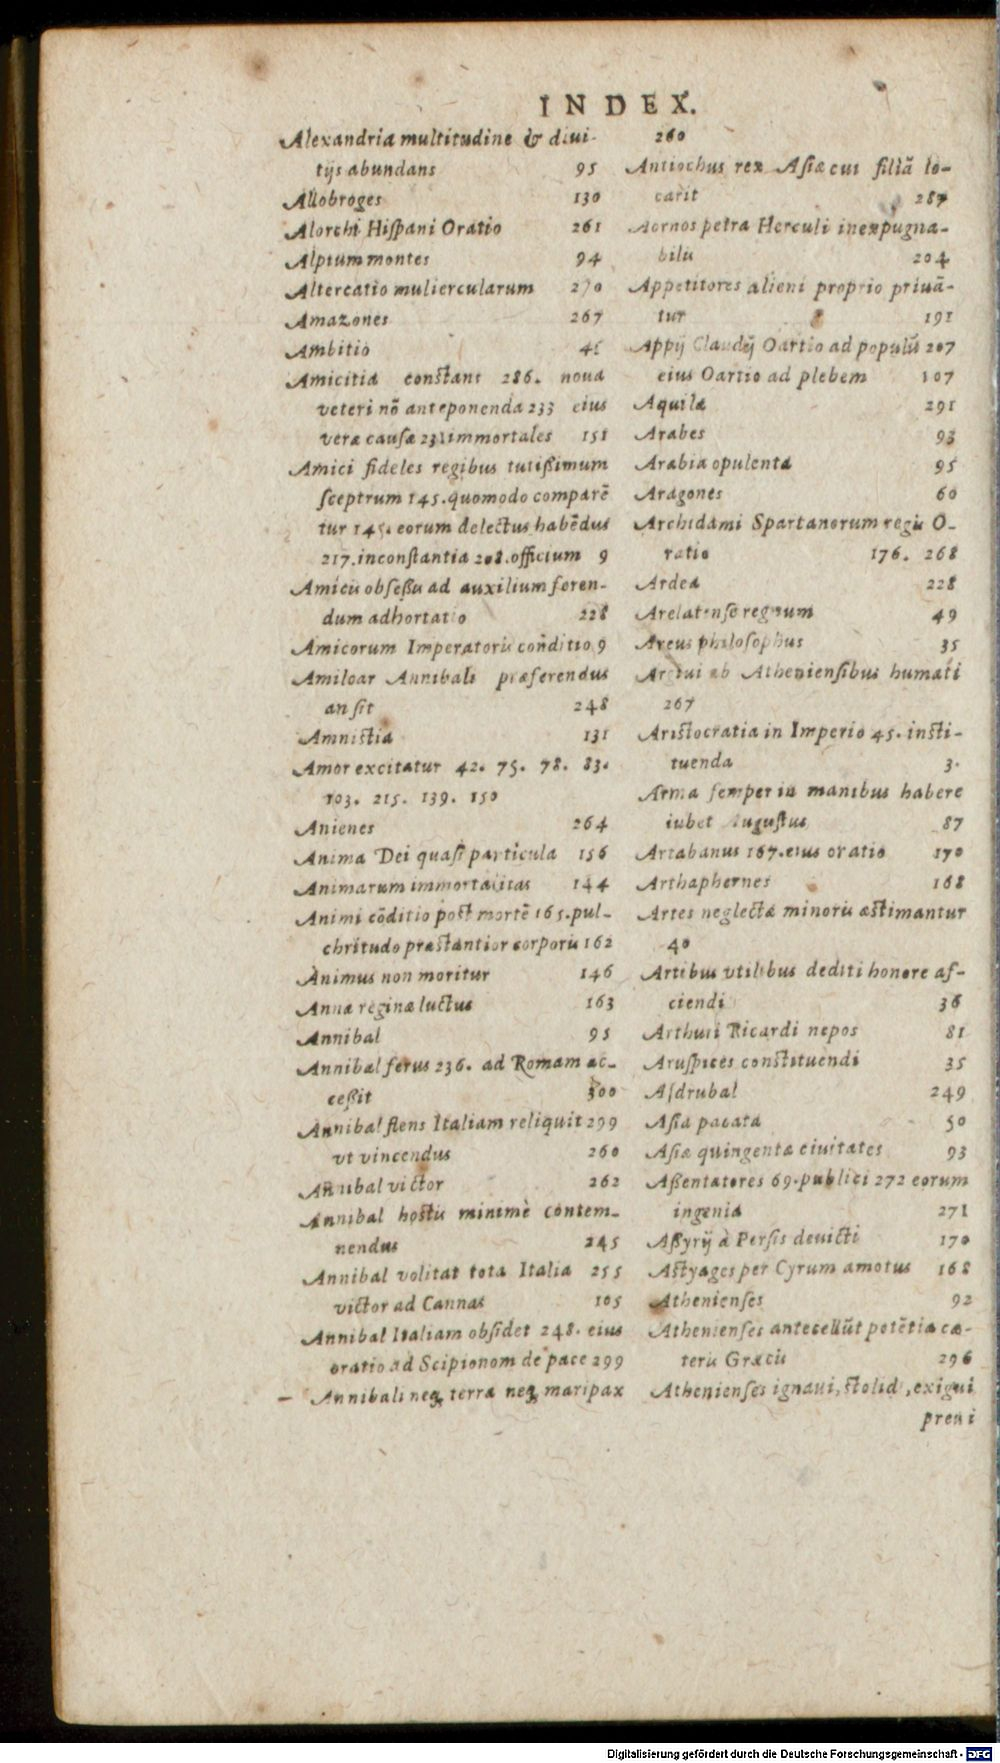 INDEX.
Alexandria multitudine & diui-
tijs abundans 95
Allobroges 130
Alorchi Hiſpani Oratio 261
Alpium montes 94
Altercatio muliercularum 270
Amazones 267
Ambitio 41
Amicitia constans 286. noua
veteri nō anteponenda 233 eius
veræ cauſæ 231 immortales 151
Amici fideles regibus tutißimum
ſceptrum 145. quomodo comparē
tur 145. eorum delectus habēdus
217. inconſtantia 208. officium 9
Amicis obſeßis ad auxilium feren-
dum adhortatio 228
Amicorum Imperatoris conditio 9
Amilcar Annibali præferendus
an ſit 248
Amnistia 131
Amor excitatur 42. 75. 78. 83.
103. 215. 139. 150
Anienes 264
Anima Dei quaſi particula 156
Animarum immortalitas 144
Animi cōditio post mortē 165. pul-
chritudo præstantior corporis 162
Animus non moritur 146
Annæ reginæ luctus 163
Annibal 95
Annibal ferus 236. ad Romam ac-
ceßit 300
Annibal flens Italiam reliquit 299
vt vincendus 260
Annibal victor 262
Annibal hostis minimè contem-
nendus 245
Annibal volitat tota Italia 255
victor ad Cannas 105
Annibal Italiam obſidet 248. eius
oratio ad Scipionom de pace 299
Annibali neq; terra neq; mari pax
260
Antiochus rex Aſiæ cui filiā lo-
carit 287
Aornos petra Herculi inexpugna-
bilis 204
Appetitores alieni proprio priuā-
tur 191
Appij Claudij Oartio ad populū 207
eius Oartio ad plebem 107
Aquilæ 291
Arabes 93
Arabia opulenta 95
Aragones 60
Archidami Spartanorum regis O-
ratio 176. 268
Ardea 228
Arelatenſe regnum 49
Areus philoſophus 35
Argiui ab Athenienſibus humati
267
Aristocratia in Imperio 45. insti-
tuenda 3.
Arma ſemper in manibus habere
iubet Auguſtus 87
Artabanus 167. eius oratio 170
Arthaphernes 168
Artes neglectæ minoris æstimantur
40
Artibus vtilibus dediti honore af-
ciendi 36
Arthuri Ricardi nepos 81
Aruſpices constituendi 35
Aſdrubal 249
Aſia pacata 50
Aſiæ quingentæ ciuitates 93
Aßentatores 69. publici 272 eorum
ingenia 271
Aßyrij à Perſis deuicti 170
Astyages per Cyrum amotus 168
Athenienſes 92
Athenienſes antecellūt potētia cæ-
teris Græcis 296
Athenienſes ignaui, stolidi, exigui
precii